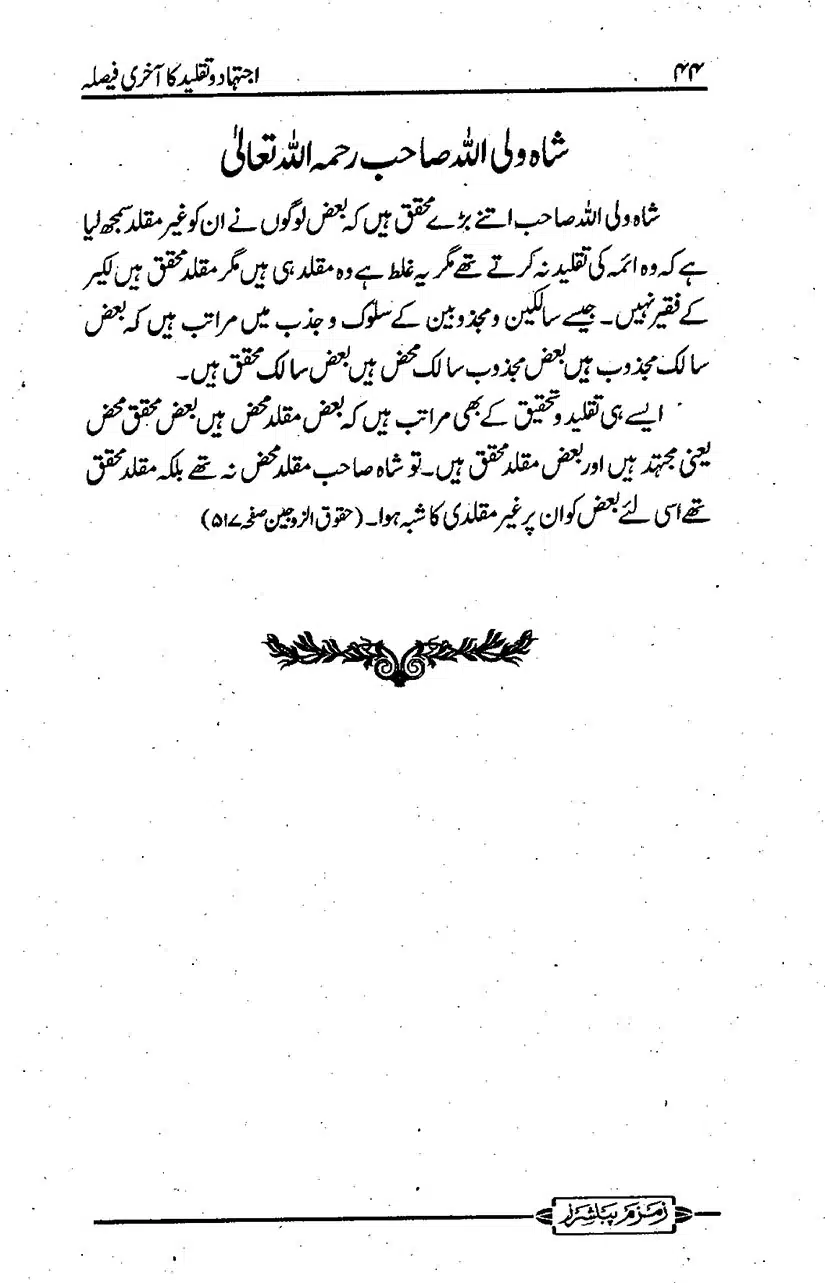 ۴۴
اجتہاد و تقلید کا آخری فیصلہ
شاہ ولی اللہ صاحب رحمہ اللہ تعالیٰ
شاہ ولی اللہ صاحب اتنے بڑے محقق ہیں کہ بعض لوگوں نے ان کو غیر مقلد سمجھ لیا
ہے کہ وہ ائمہ کی تقلید نہ کرتے تھے مگر یہ غلط ہے وہ مقلد ہی ہیں مگر مقلد محقق ہیں لکیر
کے فقیر نہیں۔ جیسے سالکین و مجذوبین کے سلوک و جذب میں مراتب ہیں کہ بعض
سالک مجذوب ہیں بعض مجذوب سالک محض ہیں بعض سالک محقق ہیں۔
ایسے ہی تقلید و تحقیق کے بھی مراتب ہیں کہ بعض مقلد محض ہیں بعض محقق محض
یعنی مجتہد ہیں اور بعض مقلد محقق ہیں۔ تو شاہ صاحب مقلد محض نہ تھے بلکہ مقلد محقق
تھے اسی لئے بعض کو ان پر غیر مقلدی کا شبہ ہوا۔ (حقوق الزوجین صفحہ ۵۱۷)
زمزم پبلشرز